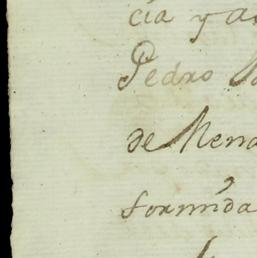 cia y a
Pedro
de Mend
formida